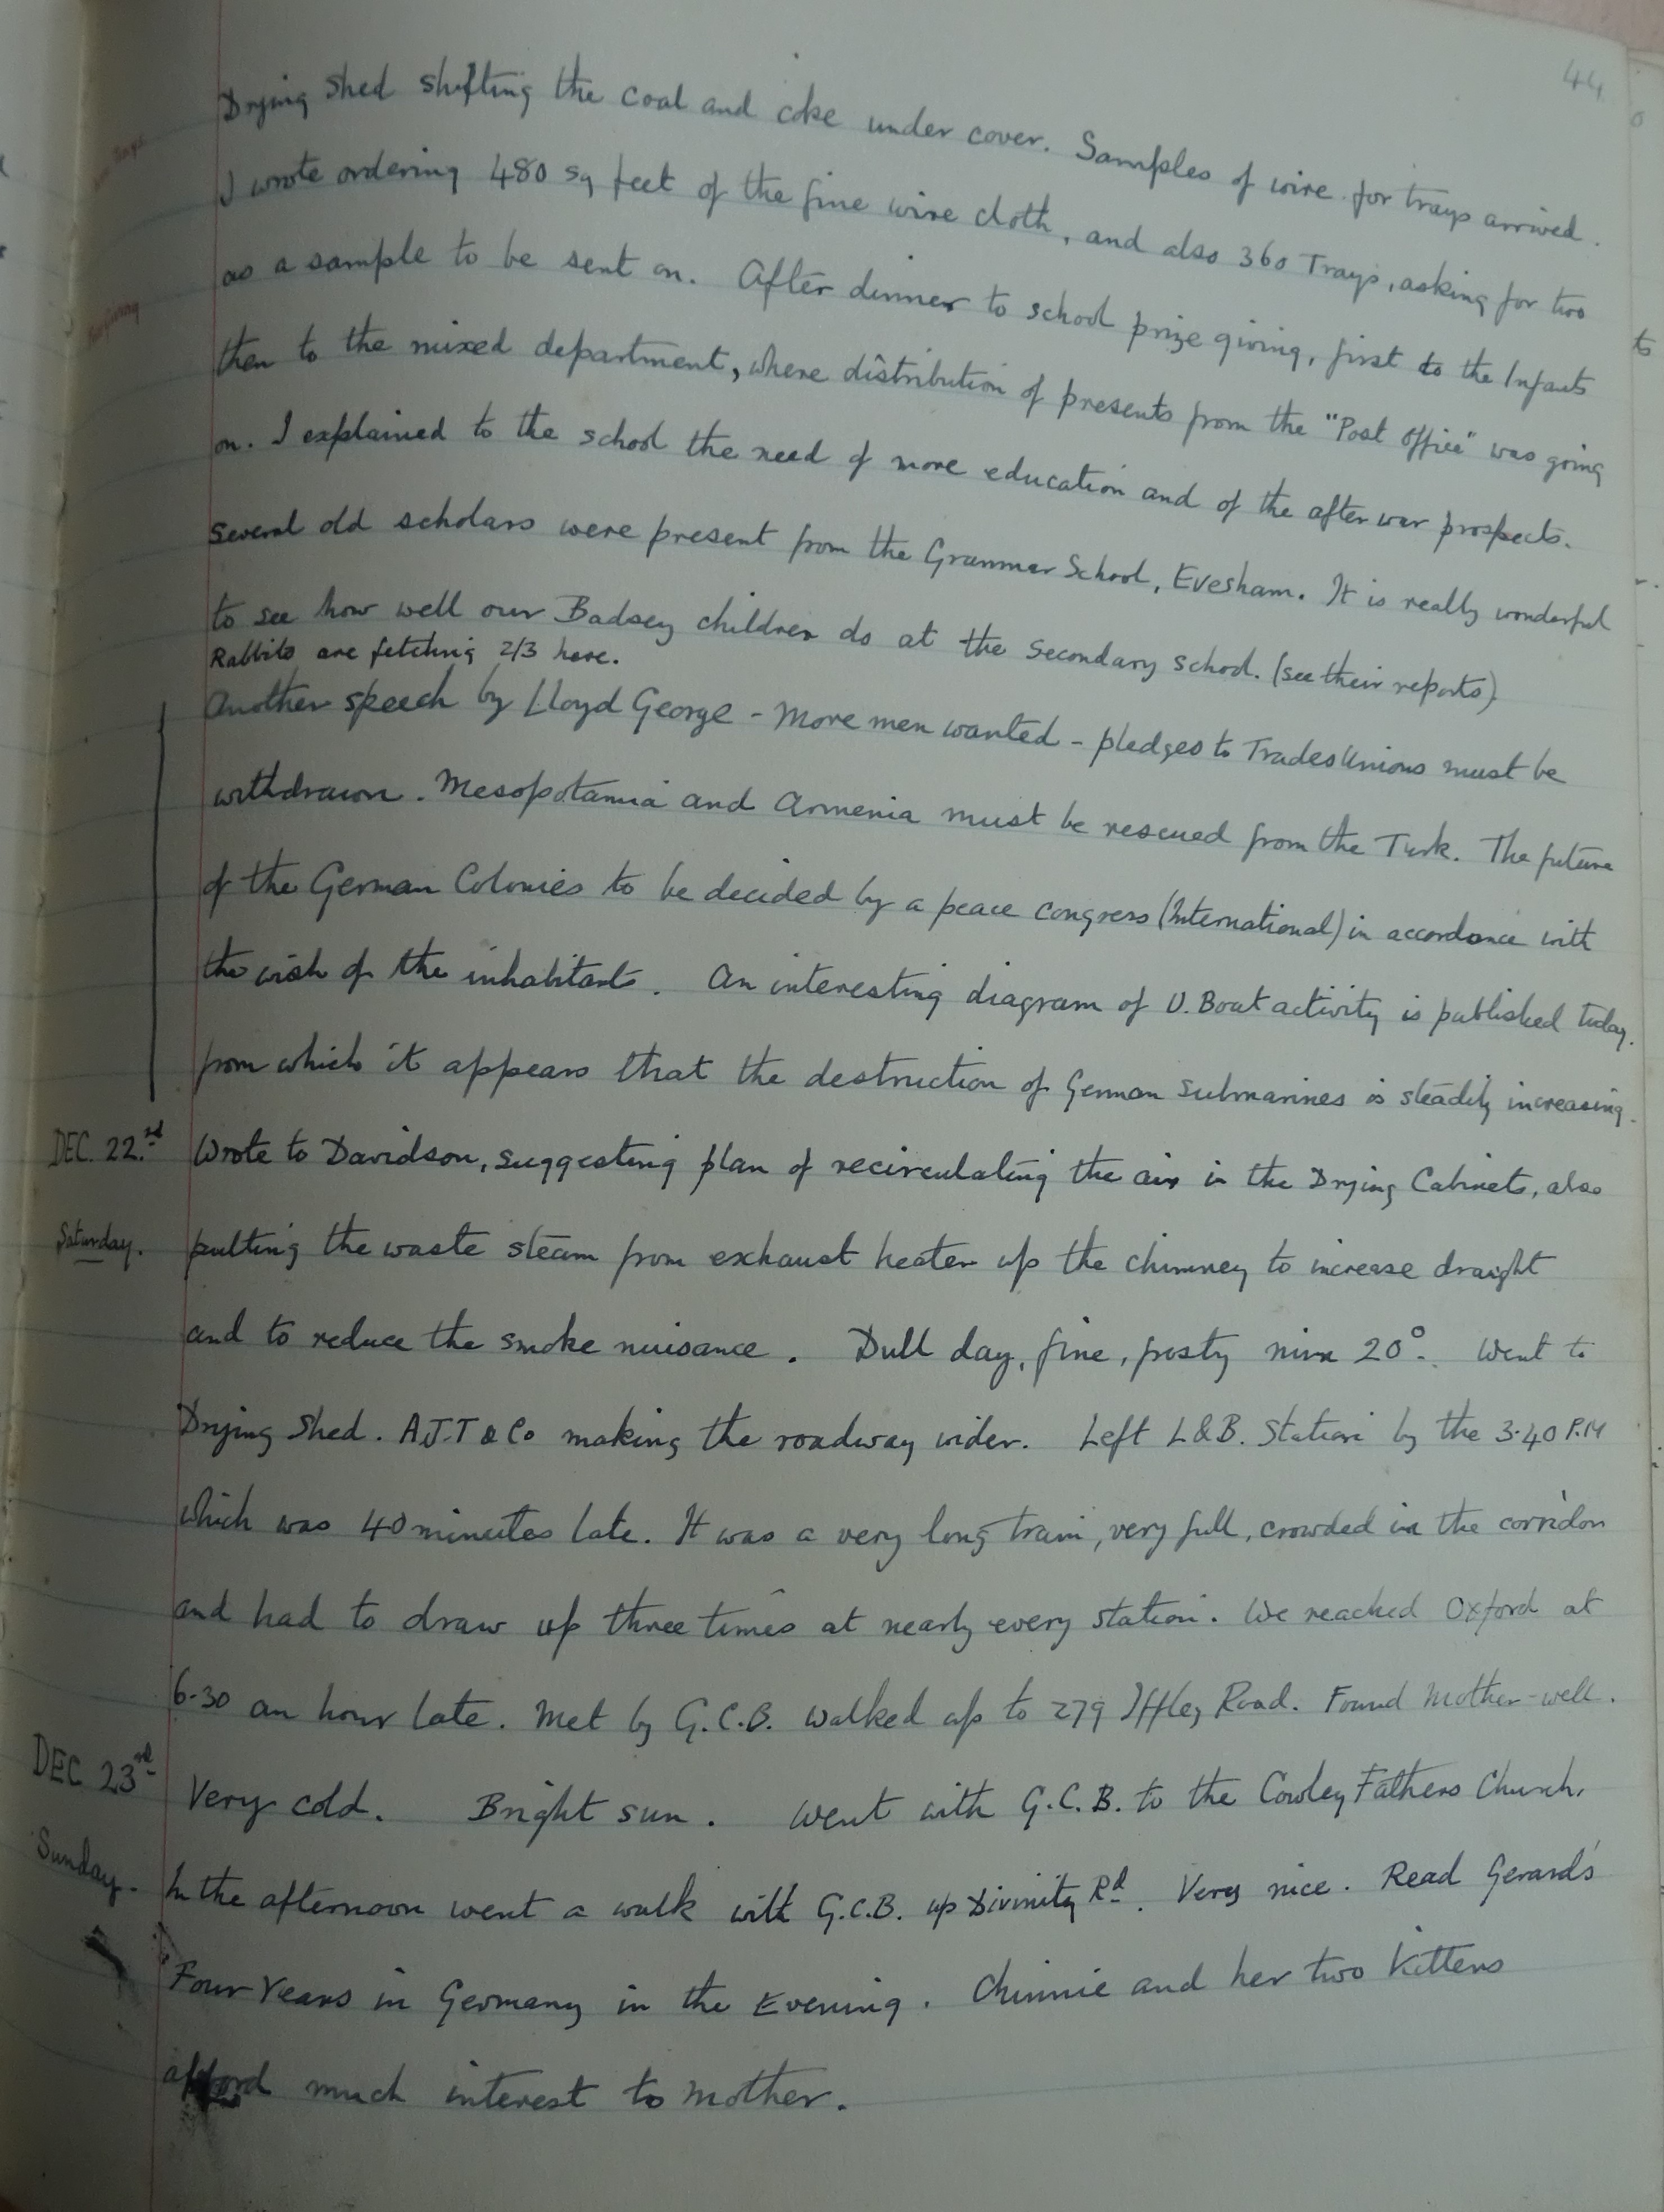 44
Drying Shed shifting the coal and coke under cover. Samples of wire for trays arrived.
I wrote ordering 480 sq feet of the fine wire cloth, and also 360 Trays, asking for two
as a sample to be sent on. After dinner to school prize giving, first to the Infants
then to the mixed department, where distribution of presents from the "Post Office" was going
on. I explained to the school the need of more education and of the after war prospects.
Several old scholars were present from the Grammar School, Evesham. It is really wonderful
to see how well our Badsey children do at the Secondary School. (see their reports)
Rabbits are fetching 2/3 here.
Another speech by Lloyd George - More men wanted - pledges to Trades Unions must be
withdrawn. Mesopotamia and Armenia must be rescued from the Turk. The future
of the German Colonies to be decided by a peace congress (International) in accordance with
the wish of the inhabitants. An interesting diagram of U. Boat activity is published today.
from which it appears that the destruction of German Submarines is steadily increasing.
DEC. 22.nd Wrote to Davidson, suggesting plan of recirculating the air in the Drying Cabinets, also
Saturday. putting the waste steam from exhaust heater up the chimney to increase draught
and to reduce the smoke nuisance. Dull day, fine, frosty min 20°. Went to
Drying Shed. A.J.T & Co making the roadway wider. Left L&B. Station by the 3.40 P.M
which was 40 minutes late. It was a very long train, very full, crowded in the corridor
and had to draw up three times at nearly every station. We reached Oxford at
6-30 an hour late. Met by G.C.B. walked up to 279 Iffley Road. Found Mother well.
DEC 23rd Very cold. Bright sun. Went with G.C.B. to the Cowley Fathers Church.
Sunday. In the afternoon went a walk with G.C.B. up Divinity Rd. Very nice. Read Gerard's
"Four Years in Germany in the Evening. Chinnie and her two Kittens
afford much interest to Mother.